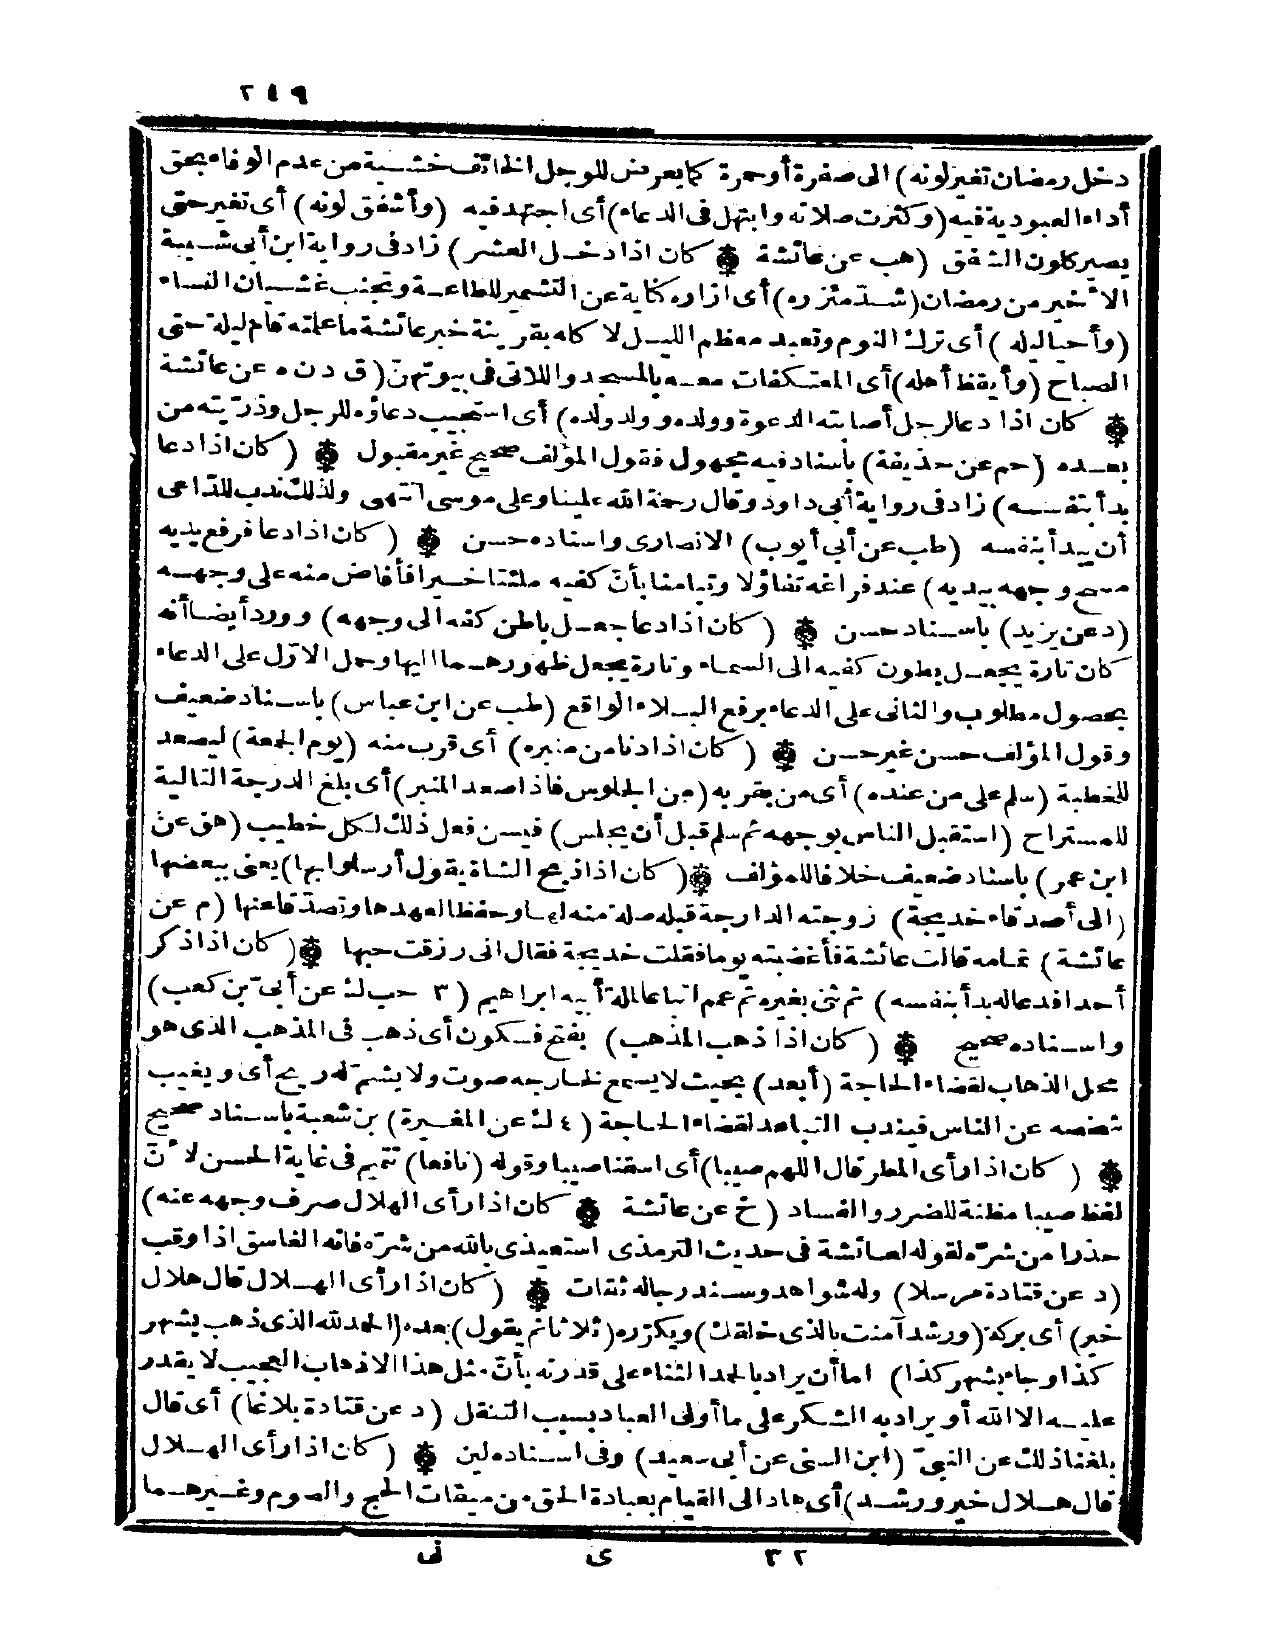 ٢٤٩
دخل رمضان تغير لونه) الى صفرة أو حمرة كما يعرض للوجل الخائف خشية من عدم الوفاء بحق
أداء العبودية فيه (وكثرت صلاته وابتهل فى الدعاء) أى اجتهد فيه (وأشفق لونه) أى تغير حتى
يصير كلون الشفق (هب عن عائشة ۞ كان اذا دخل العشر) زاد فى رواية ابن أبى شيبة
الأخير من رمضان (شد مئزره) أى ازاره كناية عن التشمير للطاعة وتجنب غشيان النساء
(وأحيا ليله) أى ترك النوم وتعبد معظم الليل لا كله بقرينة خبر عائشة ما علمته قام ليلة حتى
الصباح (وأيقظ أهله) أى المعتكفات معه بالمسجد واللاتى فى بيوتهن (ق د ن ه عن عائشة
۞ كان اذا دعا لرجل أصابته الدعوة وولده وولد ولده) أى استجيب دعاؤه للرجل وذريته من
بعده (حم عن حذيفة) باسناد فيه مجهول فقول المؤلف صحيح غير مقبول ۞ (كان اذا دعا
بدأ بنفسه) زاد فى رواية أبى داود وقال رحمة الله علينا وعلى موسى انتهى ولذلك ندب للداعى
أن يبدأ بنفسه (طب عن أبى أيوب) الانصارى واسناده حسن ۞ (كان اذا دعا فرفع يديه
مسح وجهه بيديه) عند فراغه تفاؤلا وتيامنا بأن كفيه ملئتا خيرا فأفاض منه على وجهه
(د عن يزيد) باسناد حسن ۞ (كان اذا دعا جعل باطن كفه الى وجهه) وورد أيضا أنه
كان تارة يجعل بطون كفيه الى السماء وتارة يجعل ظهورهما اليها وحمل الاول على الدعاء
بحصول مطلوب والثانى على الدعاء برفع البلاء الواقع (طب عن ابن عباس) باسناد ضعيف
وقول المؤلف حسن غير حسن ۞ (كان اذا دنا من منبره) أى قرب منه (يوم الجمعة) ليصعد
للخطبة (سلم على من عنده) أى من بقربه (من الجلوس فاذا صعد المنبر) أى بلغ الدرجة التالية
للمستراح (استقبل الناس بوجهه ثم سلم قبل أن يجلس) فيسن فعل ذلك لكل خطيب (هق عن
ابن عمر) باسناد ضعيف خلافا للمؤلف ۞ (كان اذا ذبح الشاة يقول أرسلوا بها) يعنى ببعضها
(الى أصدقاء خديجة) زوجته الدارجة قبله صلة منه لها وحفظا لعهدها وتصدقا عنها (م عن
عائشة) تمامه قالت عائشة فأغضبته يوما فقلت خديجة فقال انى رزقت حبها ۞ (كان اذا ذكر
أحدا فدعا له بدأ بنفسه) ثم ثنى بغيره ثم عمم اتباعا لملة أبيه ابراهيم (٣ حب ك عن أبى بن كعب)
واسناده صحيح ۞ (كان اذا ذهب المذهب) بفتح فسكون أى ذهب فى المذهب الذى هو
محل الذهاب لقضاء الحاجة (أبعد) بحيث لا يسمع لخارجه صوت ولا يشم له ريح أى ويغيب
شخصه عن الناس فيندب التباعد لقضاء الحاجة (٤ ك عن المغيرة) بن شعبة باسناد صحيح
۞ (كان اذا رأى المطر قال اللهم صيبا) أى اسقنا صيبا وقوله (نافعا) تتميم فى غاية الحسن لأن
لفظ صيبا مظنة للضرر والفساد (خ عن عائشة ۞ كان اذا رأى الهلال صرف وجهه عنه)
حذرا من شره لقوله لعائشة فى حديث الترمذى استعيذى بالله من شره فانه الغاسق اذا وقب
(د عن قتادة مرسلا) وله شواهد وسند رجاله ثقات ۞ (كان اذا رأى الهلال قال هلال
خير) أى بركة (ورشد آمنت بالذى خلقك) ويكرره (ثلاثا ثم يقول) بعده (الحمد لله الذى ذهب بشهر
كذا وجاء بشهر كذا) اما أن يراد بالحمد الثناء على قدرته بأن مثل هذا الاذهاب العجيب لا يقدر
عليه الا الله أو يراد به الشكر على ما أولى العباد بسبب التنقل (د عن قتادة بلاغا) أى قال
بلغنا ذلك عن النبى (ابن السنى عن أبى سعيد) وفى اسناده لين ۞ (كان اذا رأى الهلال
قال هلال خير ورشد) أى هاد الى القيام بعبادة الحق من ميقات الحج والصوم وغيرهما
٣٢ ى نى